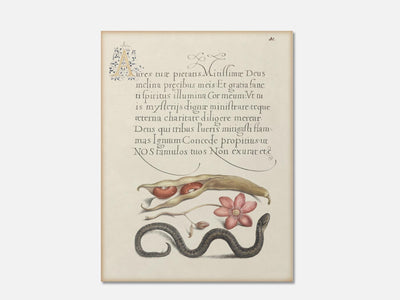 Aures tuæ pietatis Mitissime Deus
inclina precibus meis Et gratia sanc
ti spiritus illumina Cor meum Vt tu
is mysterijs digne ministrare teque
æterna charitate diligere merear
Deus qui tribus Pueris mitigasti flam
mas Ignium Concede propitius ut
NOS famulos tuos Non exurat etc